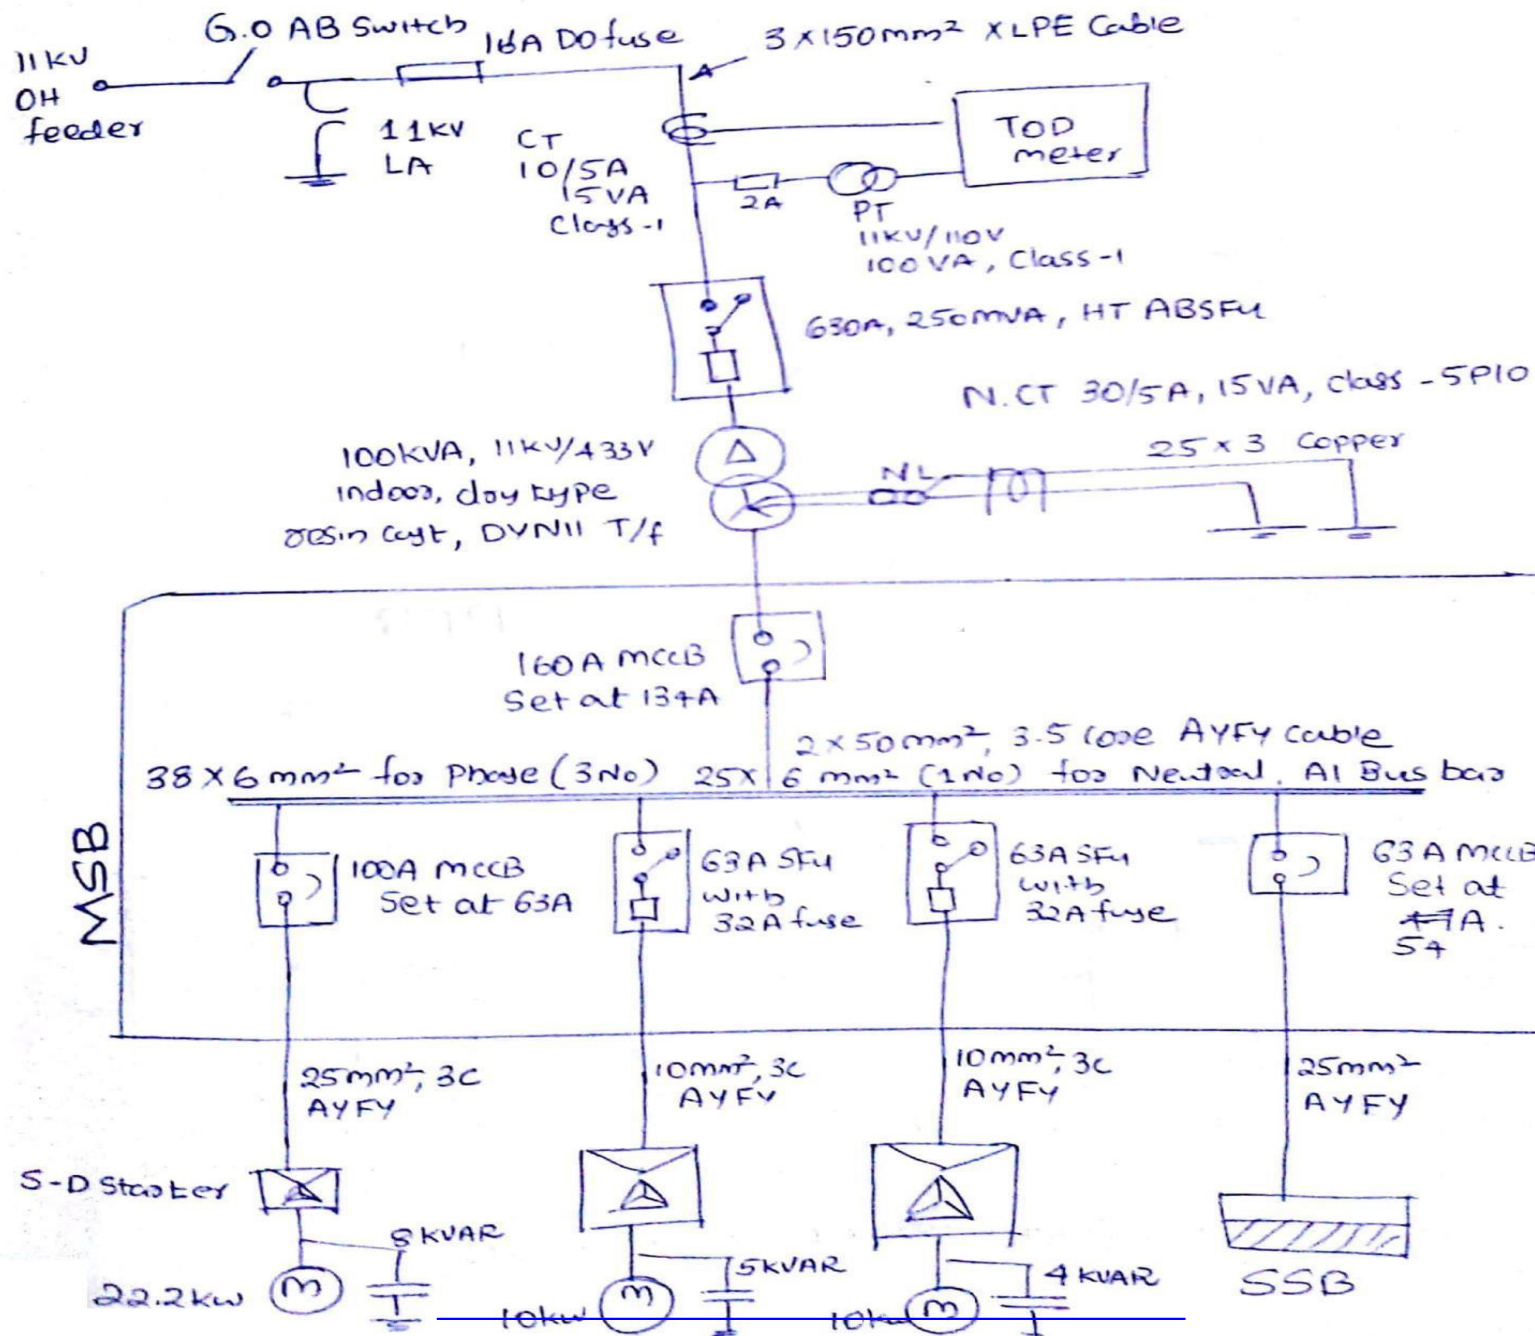 G.O AB Switch
11KV
OH
feeder
16A DO fuse
3 x 150mm² XLPE Cable
11KV
LA
CT
10/5A
15VA
Class-1
TOD
meter
2A
PT
11KV/110V
100VA, Class-1
630A, 250MVA, HT ABSFU
N.CT 30/5A, 15VA, Class-5P10
25 x 3 Copper
NL
100KVA, 11KV/433V
indoor, dry type
resin cast, DYN11 T/f
160A MCCB
Set at 134A
2 x 50mm², 3.5 core AYFY cable
38 x 6 mm² for Phase (3No) 25 x 6 mm² (1No) for Neutral. Al Bus bar
MSB
100A MCCB
Set at 63A
63A SFU
with
32A fuse
63A SFU
with
32A fuse
63A MCCB
Set at
A.
54
25mm², 3C
AYFY
10mm², 3C
AYFY
10mm², 3C
AYFY
25mm²
AYFY
S-D Starter
8KVAR
5KVAR
4KVAR
22.2kw
M
10kw
M
10kw
M
SSB